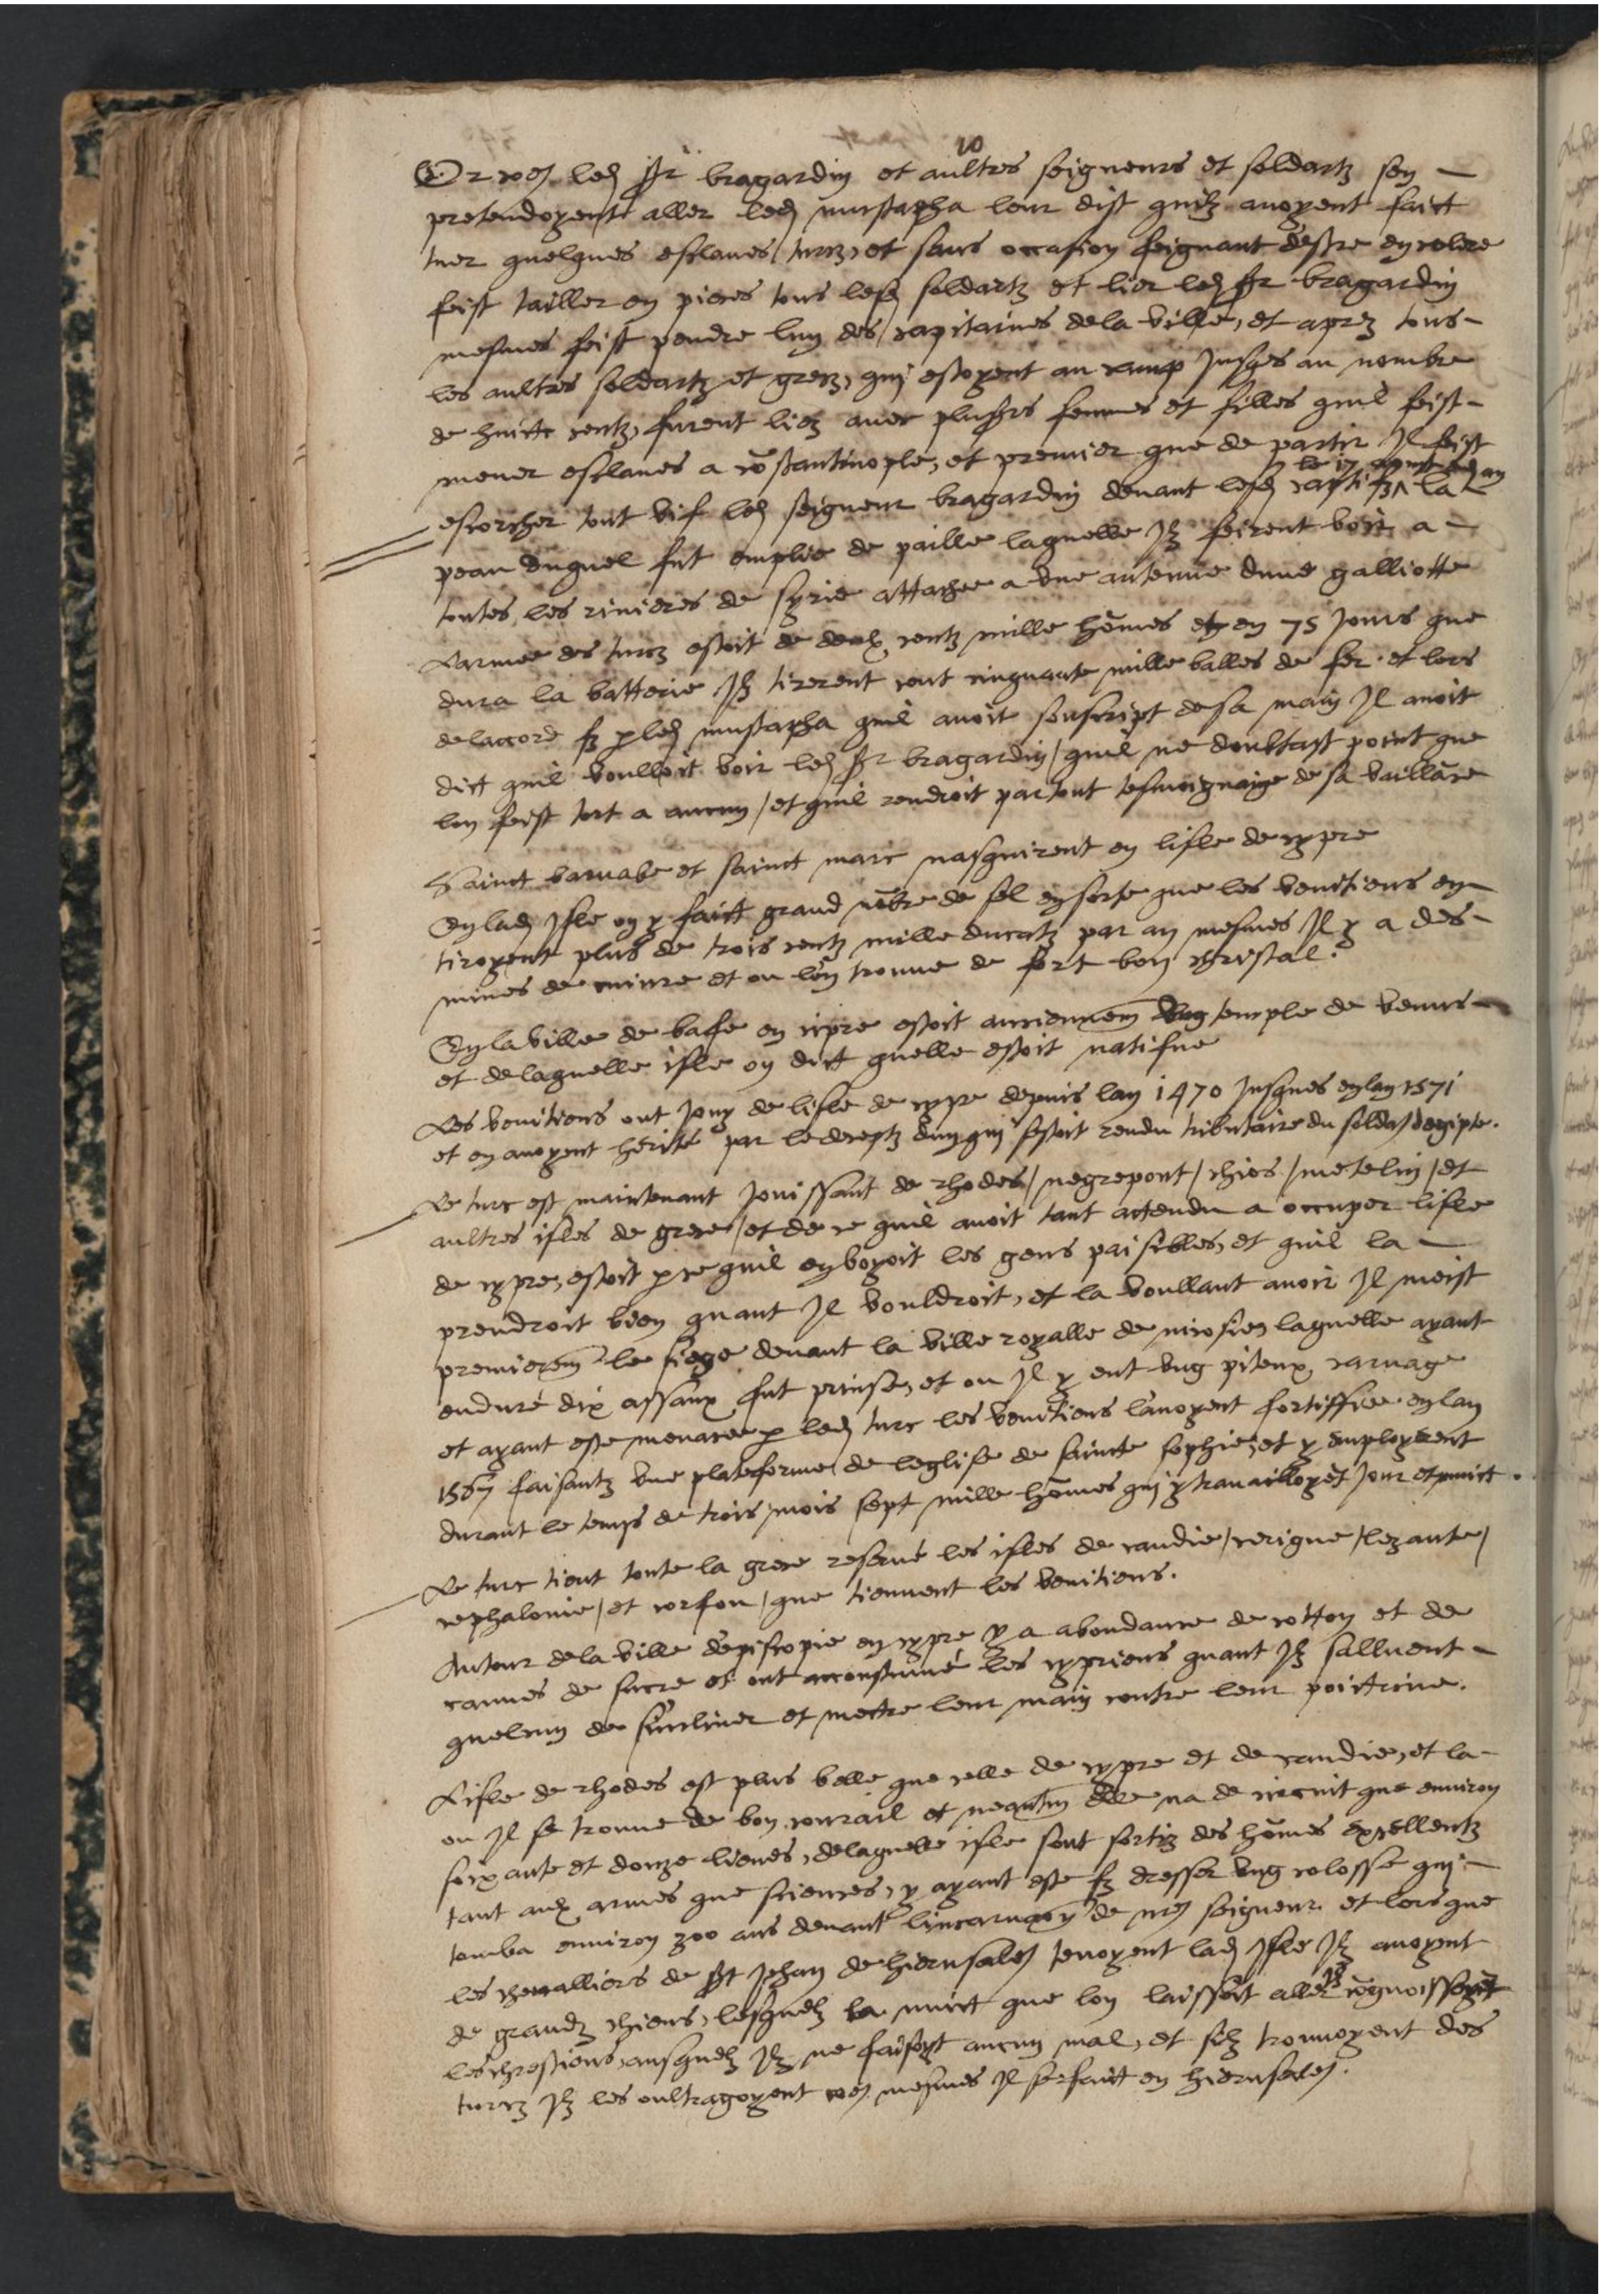 10
Or com led sr bragardin et aultres seigneurs et soldartz sen
pretendoyent aller led mustapha leur dist quilz avoyent faict
tuer quelques esclaves turcz, et sans occasion feignant destre en colere
feist tailler en pieces tous lesd soldartz et lier led sr bragardin
mesmes feist pendre lun des capitaines de la ville, et aprez tous
les aultres soldartz et grecz, qui estoyent au camp jusqes au nombre
de huict centz, furent liez avec plusrs femmes et filles quil feist
mener esclaves a cõstantinople, et premier que de partir Il feist
le 17 aoust aud an
escorcher tout vif led seigneur bragardin devant lesd captifz la
peau duquel fut emplie de paille laquelle Ilz feirent voir a
toutes les rivieres de syrie attachee a une antenne dune galliotte
Larmee des turcz estoit de deux centz mille hõmes et en 75 Jours que
dura la batterie Ilz tirerent cent cinquante mille balles de fer. et lors
delaccord fz p led mustapha quil avoit souscript de sa main Il avoit
dict quil voulloit voir led sr bragardin / quil ne doubtast point que
lon feist tort a aucun / et quil rendroit partout tesmoignaige de sa vaillãce
Sainct barnabe et sainct marc nasquirent en lisle de cypre
En lad Isle on y faict grand nõbre de sel en sorte que les venitiens en
tiroyent plus de trois centz mille ducatz par an mesmes Il y a des
mines de cuivre et ou lon trouve de fort bon christal.
En la ville de bafe en cipre estoit anciennem ung temple de venus
et de laquelle isle on dict quelle estoit natifve
Les venitiens ont Jouy de lisle de cypre depuis lan 1470 Jusques en lan 1571
et en avoyent herité par le deceptz dun qui sestoit rendu tributaire du soldan degipte.
Le turc est maintenant Jouissant de rhodes / negrepont / chios / metelin / et
aultres isles de grece / et de ce quil avoit tant actendu a occuper lisle
de cypre, estoit p ce quil en voyoit les gens paisibles, et quil la
prendroit bien quant Il vouldroit, et la voullant avoir Il meist
premierem le siege devant la ville royalle de nicosie, laquelle ayant
enduré dix assaux fut prinse, et ou Il y eut ung piteux carnage
et ayant este menacee p led turc les venitiens lavoyent fortiffiee en lan
1567 faisantz une plateforme de leglise de saincte sophie, et y employerent
durant le temps de trois mois sept mille hõmes qui y travailloyẽt Jour et nuict.
Le turc tient toute la grece reservé les isles de candie / cerigue / lezante /
cephalonie / et corfou / que tiennent les venitiens.
Autour de la ville depiscopie en cypre y a abondance de cotton et de
cannes de sucre et ont accoustumé les cypriens quant Ilz salluent
quelcun de sincliner et mectre leur main contre leur poictrine.
Lisle de rhodes est plus belle que celle de cypre et de candie, et la
ou Il se trouve de bon courail et neantm elle na de circuit que environ
soixante et douze lieues, de laquelle isle sont sortiz des hõmes excellentz
tant aux armes que sciences, y ayant este fz dresser ung colosse qui
tomba environ 300 ans devant lincarnaon de nre seigneur. et lors que
les chevalliers de st Jehan de hierusalem tenoyent lad Isle Ilz avoyent
de grandz chiens, lesquelz la nuict que lon laissoit aller Ilz cõgnoissoyẽt
les chrestiens, ausquelz Ilz ne faisoyẽt aucun mal, et silz trouvoyent des
turcz Ilz les oultragoyent com mesmes Il se faict en hierusalem.